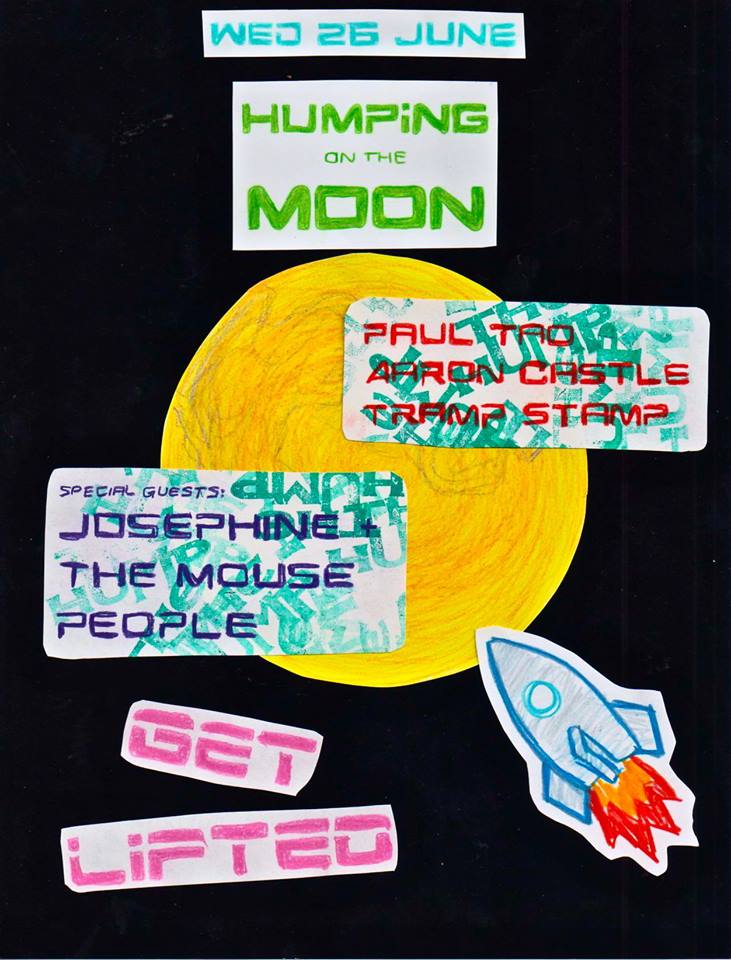 WED 26 JUNE
HUMPiNG
ON THE
MOON
PAUL TAO
AARON CASTLE
TRAMP STAMP
SPECIAL GUESTS:
HUMP
JOSEPHINE +
THE MOUSE
PEOPLE
GET
LiFTED